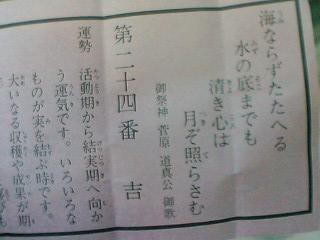 海ならずたたへる
水の底までも
清き心は
月ぞ照らさむ
御祭神 菅原 道真公 御歌
第二十四番 吉
運勢 活動期から結実期へ向か
う運気です。いろいろな
ものが実を結ぶ時です。
大いなる収穫や成果が期